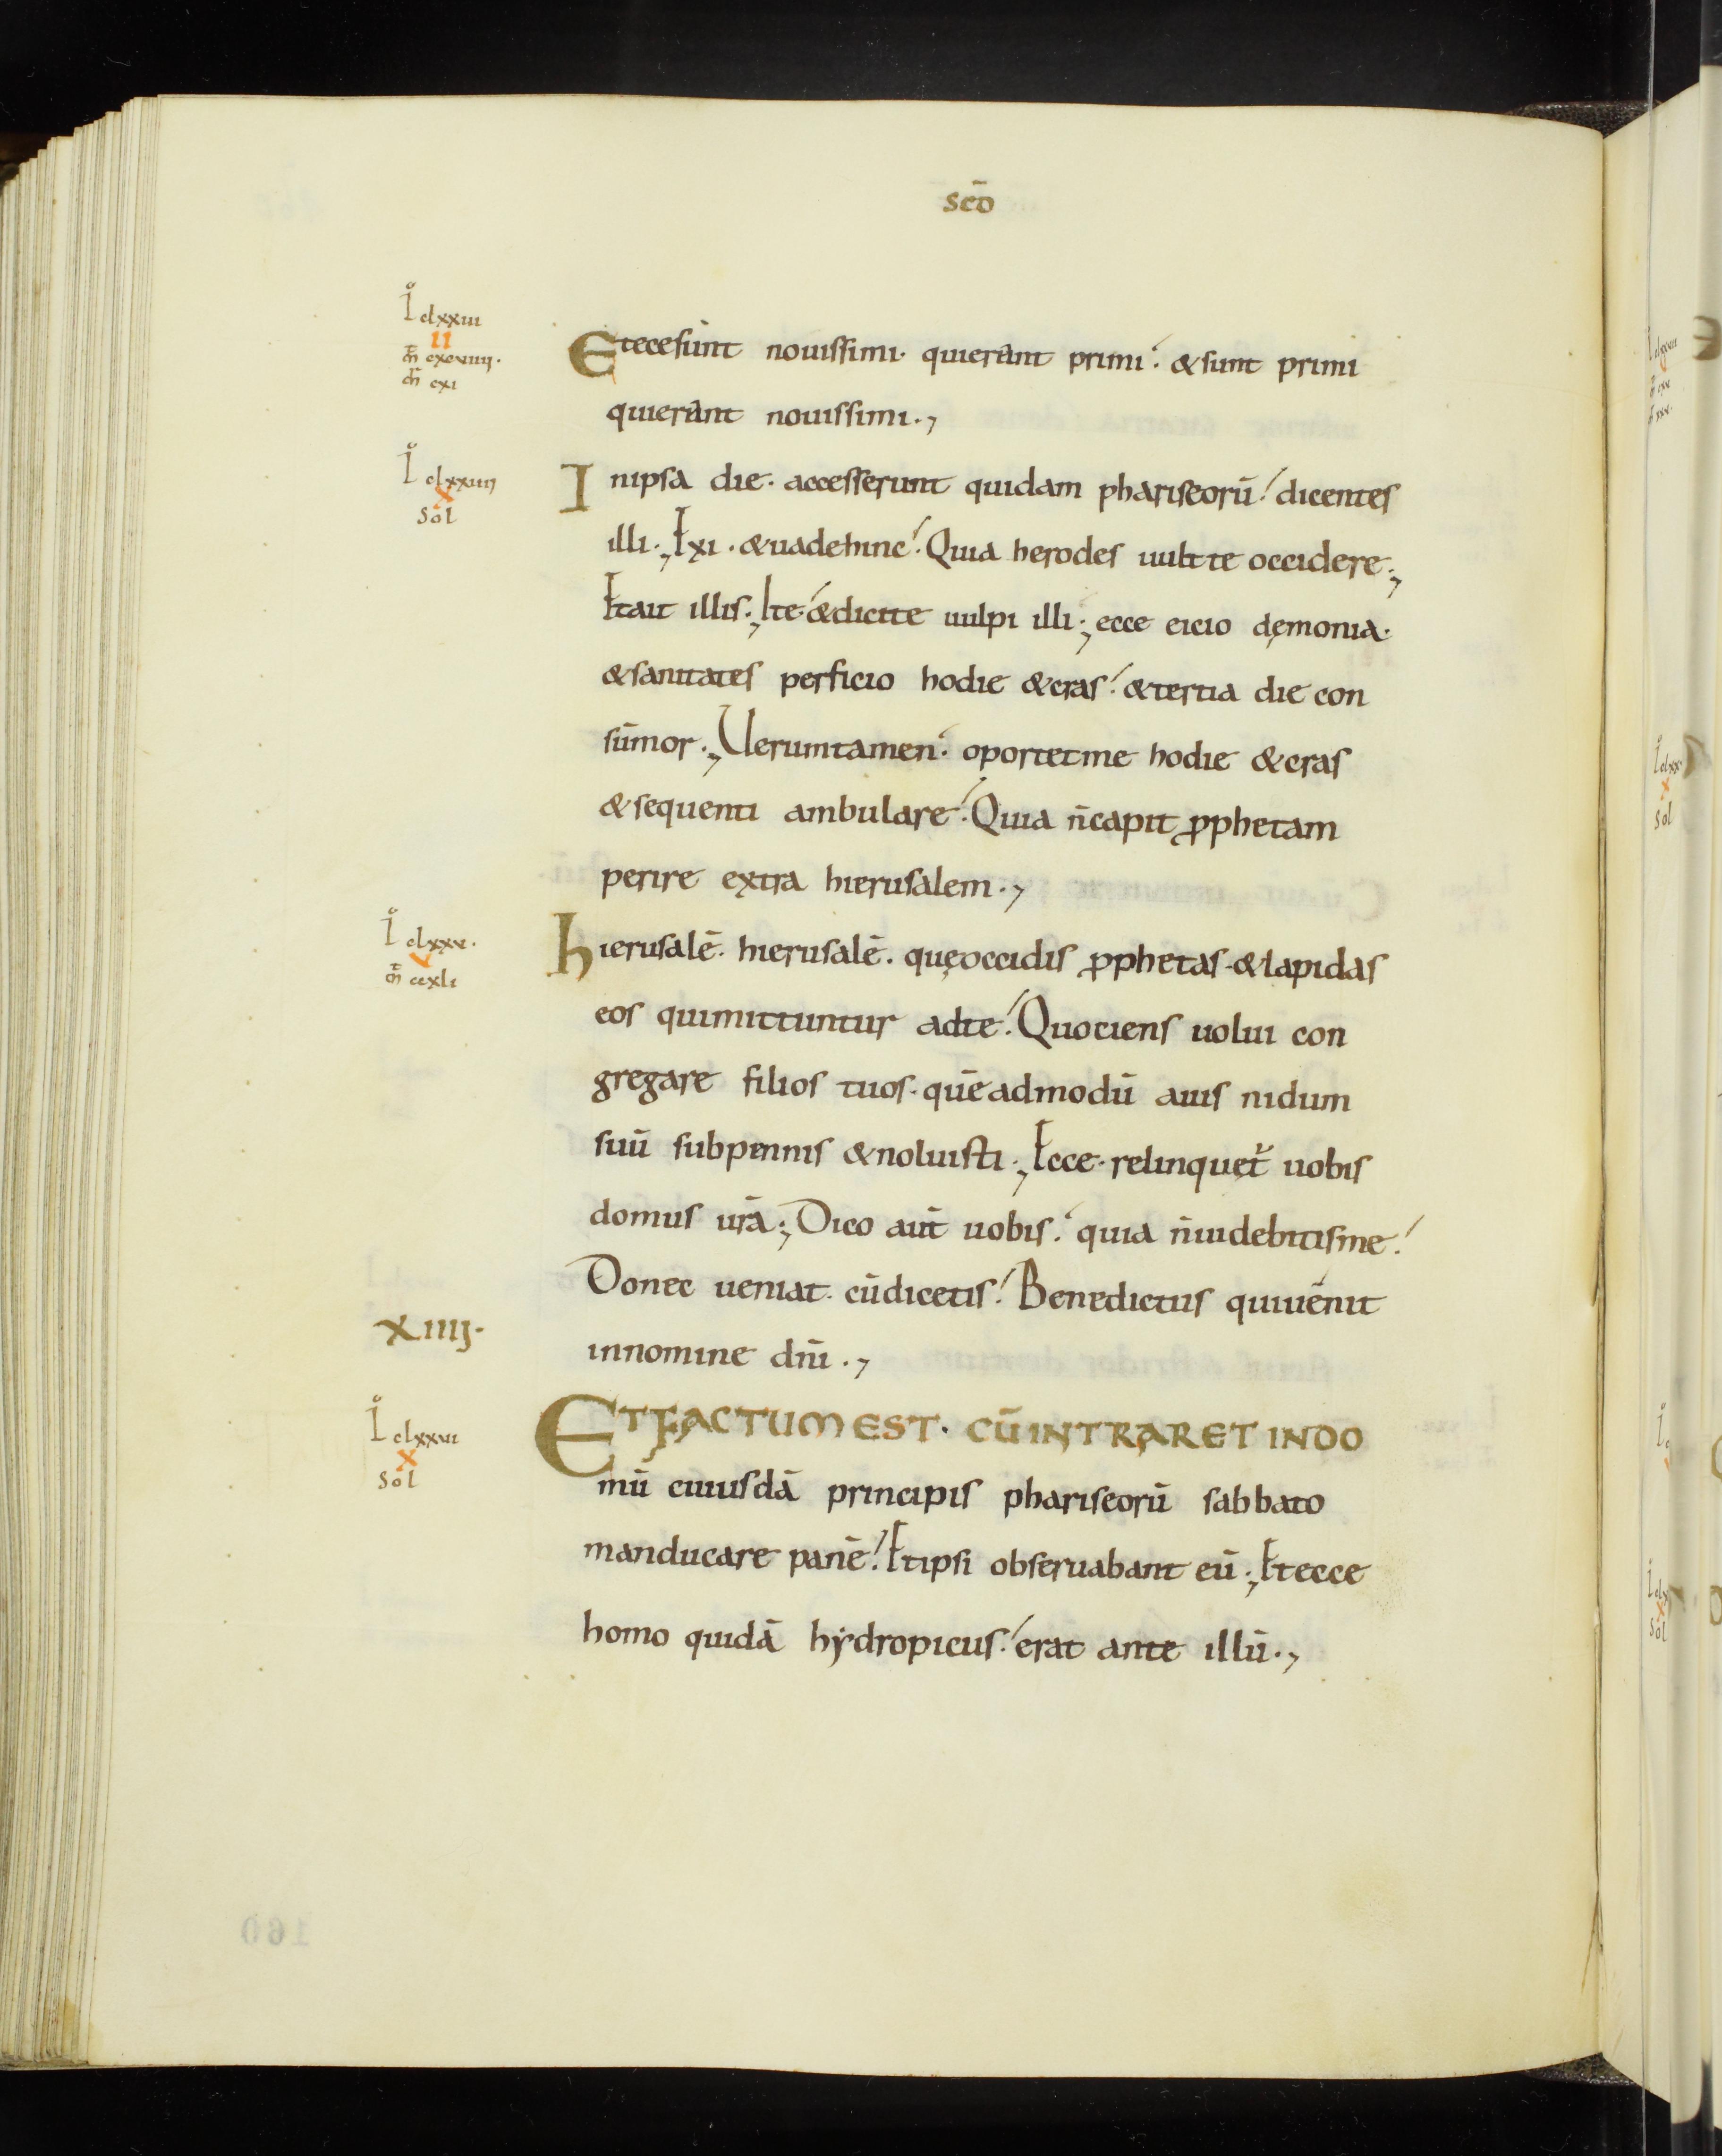 sc̄o
L̊ clxxiii
II
m̄ cxcviiij.
m̄ cxi
Etecesunt nouissimi. quierant primi. & sunt primi
quierant nouissimi.,
L̊ clxxiiij
X
Sol
In ipsa die. accesserunt quidam phariseorū. dicentes
illi., Exi. &uadehinc. Quia herodes uult te occidere.,
Et ait illis., Ite. &dicite uulpi illi., ecce eicio dęmonia.
&sanitates perficio hodie &cras. &tertia die con
sūmor., Uerumtamen. oportetme hodie &cras
&sequenti ambulare. Quia n̄capit ꝓphetam
perire extra hierusalem.,
L̊ clxxv.
V
m̄ ccxli
hierusalē. hierusalē. quęoccidis ꝓphetas. &lapidas
eos quimittuntur adte. Quociens uolui con
gregare filios tuos. quēadmodū auis nidum
suū subpennis &noluisti., Ecce. relinquet᷑ uobis
domus ur̄a., Dico aut̄ uobis. quia n̄uidebitisme.
Donec ueniat. cūdicetis. Benedictus quiuenit
innomine dn̄i.,
XIIIJ.
L̊ clxxvi
X
Sol
ETFACTUM EST. CŪINTRARET INDO
mū cuiusdā principis phariseorū sabbato
manducare panē. Etipsi obseruabant eū., Etecce
homo quidā hẏdropicus. erat ante illū.,